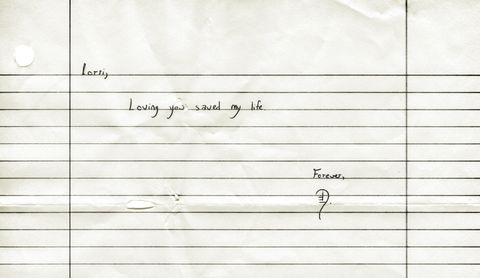 Lorri,
Loving you saved my life.
Forever,